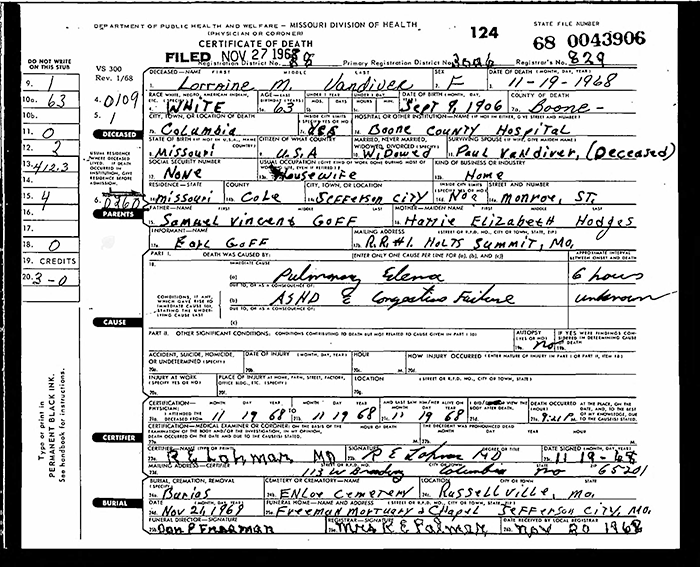 DEPARTMENT OF PUBLIC HEALTH AND WELFARE - MISSOURI DIVISION OF HEALTH
(PHYSICIAN OR CORONER)
CERTIFICATE OF DEATH
124
STATE FILE NUMBER
68 0043906
FILED NOV 27 1968
Registration District No.
Primary Registration District No. 3006
Registrar's No. 829
DO NOT WRITE ON THIS STUB
VS 300
Rev. 1/68
DECEASED—NAME FIRST MIDDLE LAST
Lorraine M. Vandiver
SEX
F
DATE OF DEATH (MONTH, DAY, YEAR)
11-19-1968
RACE WHITE, NEGRO, AMERICAN INDIAN, ETC. (SPECIFY)
WHITE
AGE—LAST BIRTHDAY (YEARS)
63
UNDER 1 YEAR
MOS. DAYS
UNDER 1 DAY
HOURS MIN.
DATE OF BIRTH (MONTH, DAY, YEAR)
Sept 9, 1906
COUNTY OF DEATH
Boone
CITY, TOWN, OR LOCATION OF DEATH
Columbia
INSIDE CITY LIMITS (SPECIFY YES OR NO)
HOSPITAL OR OTHER INSTITUTION—NAME (IF NOT IN EITHER, GIVE STREET AND NUMBER)
Boone County Hospital
STATE OF BIRTH (IF NOT IN U.S.A., NAME COUNTRY)
Missouri
CITIZEN OF WHAT COUNTRY
U.S.A
MARRIED, NEVER MARRIED, WIDOWED, DIVORCED (SPECIFY)
Widowed
SURVIVING SPOUSE (IF WIFE, GIVE MAIDEN NAME)
Paul Vandiver, (Deceased)
SOCIAL SECURITY NUMBER
None
USUAL OCCUPATION (GIVE KIND OF WORK DONE DURING MOST OF WORKING LIFE, EVEN IF RETIRED)
Housewife
KIND OF BUSINESS OR INDUSTRY
Home
USUAL RESIDENCE WHERE DECEASED LIVED. IF DEATH OCCURRED IN INSTITUTION, GIVE RESIDENCE BEFORE ADMISSION.
RESIDENCE—STATE
Missouri
COUNTY
Cole
CITY, TOWN, OR LOCATION
Jefferson City
INSIDE CITY LIMITS (SPECIFY YES OR NO)
STREET AND NUMBER
Monroe, ST.
FATHER—NAME FIRST MIDDLE LAST
Samuel Vincent Goff
MOTHER—MAIDEN NAME FIRST MIDDLE LAST
Elizabeth Hodges
INFORMANT—NAME
Earl Goff
MAILING ADDRESS (STREET OR R.F.D. NO., CITY OR TOWN, STATE, ZIP)
R.R.#1. Holts Summit, Mo.
PART I. DEATH WAS CAUSED BY: [ENTER ONLY ONE CAUSE PER LINE FOR (a), (b), AND (c)]
APPROXIMATE INTERVAL BETWEEN ONSET AND DEATH
IMMEDIATE CAUSE
(a) Pulmonary Edema
6 hours
DUE TO, OR AS A CONSEQUENCE OF:
CONDITIONS, IF ANY, WHICH GAVE RISE TO IMMEDIATE CAUSE (a), STATING THE UNDERLYING CAUSE LAST
(b) ASHD c Congestive Failure
unknown
DUE TO, OR AS A CONSEQUENCE OF:
(c)
PART II. OTHER SIGNIFICANT CONDITIONS: CONDITIONS CONTRIBUTING TO DEATH BUT NOT RELATED TO CAUSE GIVEN IN PART I (a)
AUTOPSY (YES OR NO)
no
IF YES WERE FINDINGS CONSIDERED IN DETERMINING CAUSE OF DEATH
ACCIDENT, SUICIDE, HOMICIDE, OR UNDETERMINED (SPECIFY)
DATE OF INJURY (MONTH, DAY, YEAR)
HOUR
HOW INJURY OCCURRED (ENTER NATURE OF INJURY IN PART I OR PART II, ITEM 18)
INJURY AT WORK (SPECIFY YES OR NO)
PLACE OF INJURY AT HOME, FARM, STREET, FACTORY, OFFICE BLDG., ETC. (SPECIFY)
LOCATION (STREET OR R.F.D. NO., CITY OR TOWN, STATE)
CERTIFICATION—PHYSICIAN: I ATTENDED THE DECEASED FROM
MONTH DAY YEAR
11 19 68 TO 11 19 68
AND LAST SAW HIM/HER ALIVE ON
11 19 68
DEATH OCCURRED AT THE PLACE, ON THE DATE, AND, TO THE BEST OF MY KNOWLEDGE, DUE TO THE CAUSE(S) STATED.
9:21 P.M.
CERTIFICATION—MEDICAL EXAMINER OR CORONER: ON THE BASIS OF THE EXAMINATION OF THE BODY AND/OR THE INVESTIGATION, IN MY OPINION, DEATH OCCURRED ON THE DATE AND DUE TO THE CAUSE(S) STATED.
HOUR OF DEATH
THE DECEDENT WAS PRONOUNCED DEAD
MONTH DAY YEAR HOUR
CERTIFIER—NAME (TYPE OR PRINT)
R E Lohman MD
SIGNATURE
R E Lohman MD
DEGREE OR TITLE
DATE SIGNED (MONTH, DAY, YEAR)
11-19-68
MAILING ADDRESS—CERTIFIER
STREET OR R.F.D. NO. CITY OR TOWN STATE ZIP
113 W Columbia Mo 65201
BURIAL, CREMATION, REMOVAL (SPECIFY)
Burial
CEMETERY OR CREMATORY—NAME
Enloe Cemetery
LOCATION CITY OR TOWN STATE
Russellville, Mo.
DATE (MONTH, DAY, YEAR)
Nov 21, 1968
FUNERAL HOME—NAME AND ADDRESS (STREET OR R.F.D. NO., CITY OR TOWN, STATE, ZIP)
Freeman Mortuary & Chapel Jefferson City, Mo.
FUNERAL DIRECTOR—SIGNATURE
Don P Freeman
REGISTRAR—SIGNATURE
Mrs R E Palmer
DATE RECEIVED BY LOCAL REGISTRAR
Nov 20 1968
9. 1
10a. 63
10b.
11. 0
12. 2
13. 412.3
15. 4
16.
17.
18. 0
19. CREDITS
20. 3-0
4. 0109
5. 1
6. 0260
DECEASED
PARENTS
CAUSE
CERTIFIER
BURIAL
Type or print in
PERMANENT BLACK INK.
See handbook for instructions.